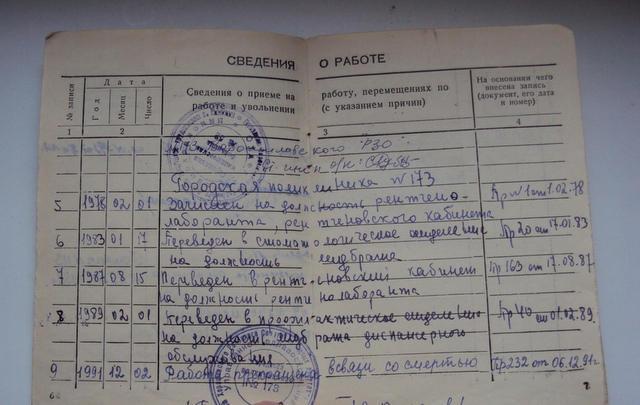 СВЕДЕНИЯ О РАБОТЕ
№ записи
Дата
Год
Месяц
Число
Сведения о приеме на работу, перемещениях по
работе и увольнении (с указанием причин)
На основании чего
внесена запись
(документ, его дата
и номер)
1 2 3 4
№ 173 РЗО
Городская поликлиника №173
5 1978 02 01 Зачислен на должность рентгено- Пр №1 от 1.02.78
лаборанта, рентгеновского кабинета
6 1983 01 17 Переведен в стоматологическое отделение Пр 20 от 17.01.83
на должность медбрата
7 1987 08 15 Переведен в рентгеновский кабинет Пр 163 от 17.08.87
на должность рентгенолаборанта
8 1989 02 01 Переведен в профилактическое отделение Пр 40 от 01.02.89.
на должность медбрата диспансерного
обслуживания
9 1991 12 02 Работа прекращена всвязи со смертью Пр 232 от 06.12.91г
7